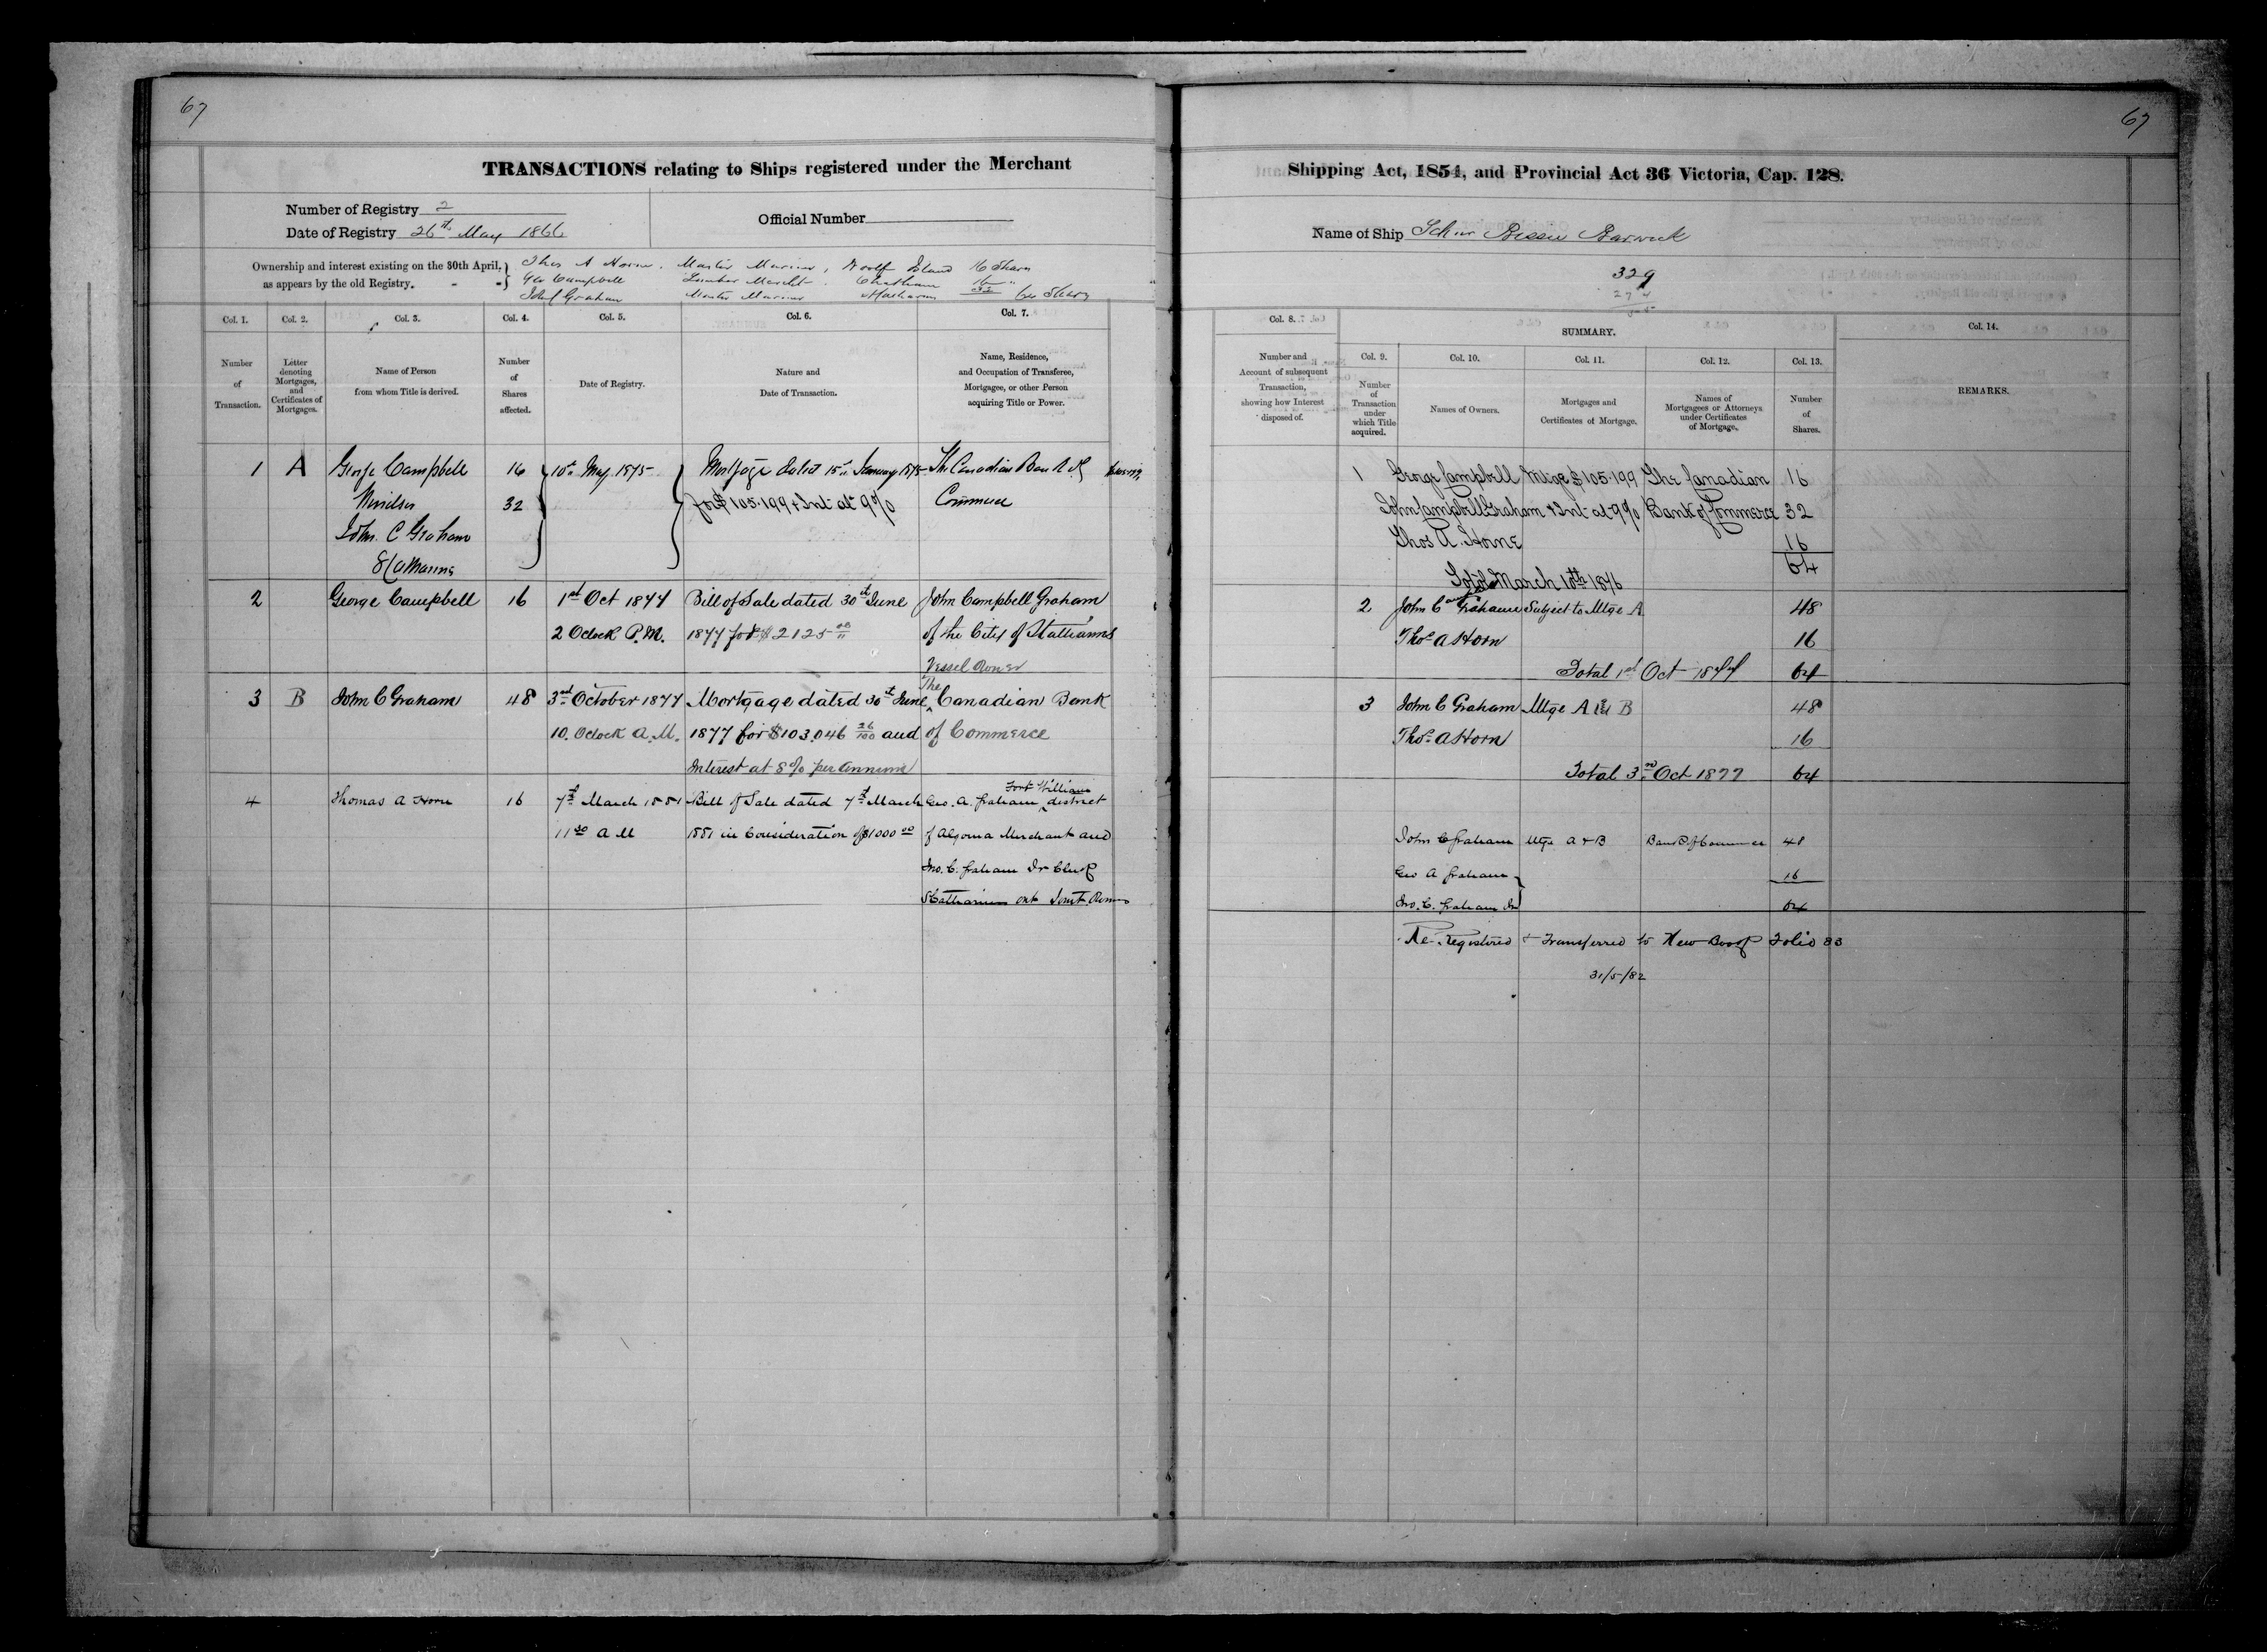 67
67
TRANSACTIONS relating to Ships registered under the Merchant
Shipping Act, 1854, and Provincial Act 36 Victoria, Cap. 128.
Number of Registry 2
Date of Registry 26th May 1866
Official Number
Name of Ship Schr Bessie Barwick
Ownership and interest existing on the 30th April,
as appears by the old Registry.
Thos A Horne, Master Mariner, Woolf Island 16 Shares
Geo Campbell Lumber Mercht. Chatham 16 "
John C Graham Master Mariner 32 64 Shares
329
Col. 1.
Number
of
Transaction.
Col. 2.
Letter
denoting
Mortgages,
and
Certificates of
Mortgages.
Col. 3.
Name of Person
from whom Title is derived.
Col. 4.
Number
of
Shares
affected.
Col. 5.
Date of Registry.
Col. 6.
Nature and
Date of Transaction.
Col. 7.
Name, Residence,
and Occupation of Transferee,
Mortgagee, or other Person
acquiring Title or Power.
Col. 8.
Number and
Account of subsequent
Transaction,
showing how Interest
disposed of.
SUMMARY.
Col. 9.
Number
of
Transaction
under
which Title
acquired.
Col. 10.
Names of Owners.
Col. 11.
Mortgages and
Certificates of Mortgage.
Col. 12.
Names of
Mortgagees or Attorneys
under Certificates
of Mortgage.
Col. 13.
Number
of
Shares.
Col. 14.
REMARKS.
1 A George Campbell 16 10th May 1875 Mortgage dated 15th January 1875 The Canadian Bank of
Windsor 32 for $105.199 + Int at 9% Commerce
John. C Graham
St Catharins
2 George Campbell 16 1st Oct 1877 Bill of Sale dated 30th June John Campbell Graham
2 Oclock P.M. 1877 for $2125 of the City of St Catharines
Vessel Owner
3 B John C Graham 48 3rd October 1877 Mortgage dated 30th June The Canadian Bank
10. Oclock A.M. 1877 for $103.046 26/100 and of Commerce
Interest at 8% per annum
4 Thomas A Horn 16 7th March 1881 Bill of Sale dated 7th March Geo. A. Graham, Fort William district
11 30 A M 1881 in Consideration of $1000 00 of Algoma Merchant and
Jno. C. Graham Jr Clerk
St Catharines Ont Joint Owners
1 George Campbell Mtge $105.199 The Canadian 16
John Campbell Graham + Int at 9% Bank of Commerce 32
Thos A. Horne 16
64
Total March 10th 1876
2 John C Graham Subject to Mtge A 48
Thos A Horn 16
Total 1st Oct 1877 64
3 John C Graham Mtge A & B 48
Thos A Horn 16
Total 3rd Oct 1877 64
John C Graham Mtge A & B Bank of Commerce 48
Geo A Graham 16
Jno. C. Graham Jr 64
Re-Registered & Transferred to New Book Folio 83
31/5/82